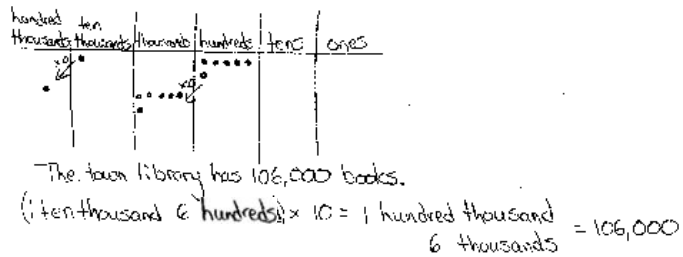 hundred ten
thousands thousands thousands hundreds tens ones
x10 x10
The town library has 106,000 books.
(1 ten thousand 6 hundreds) x 10 = 1 hundred thousand
6 thousands = 106,000